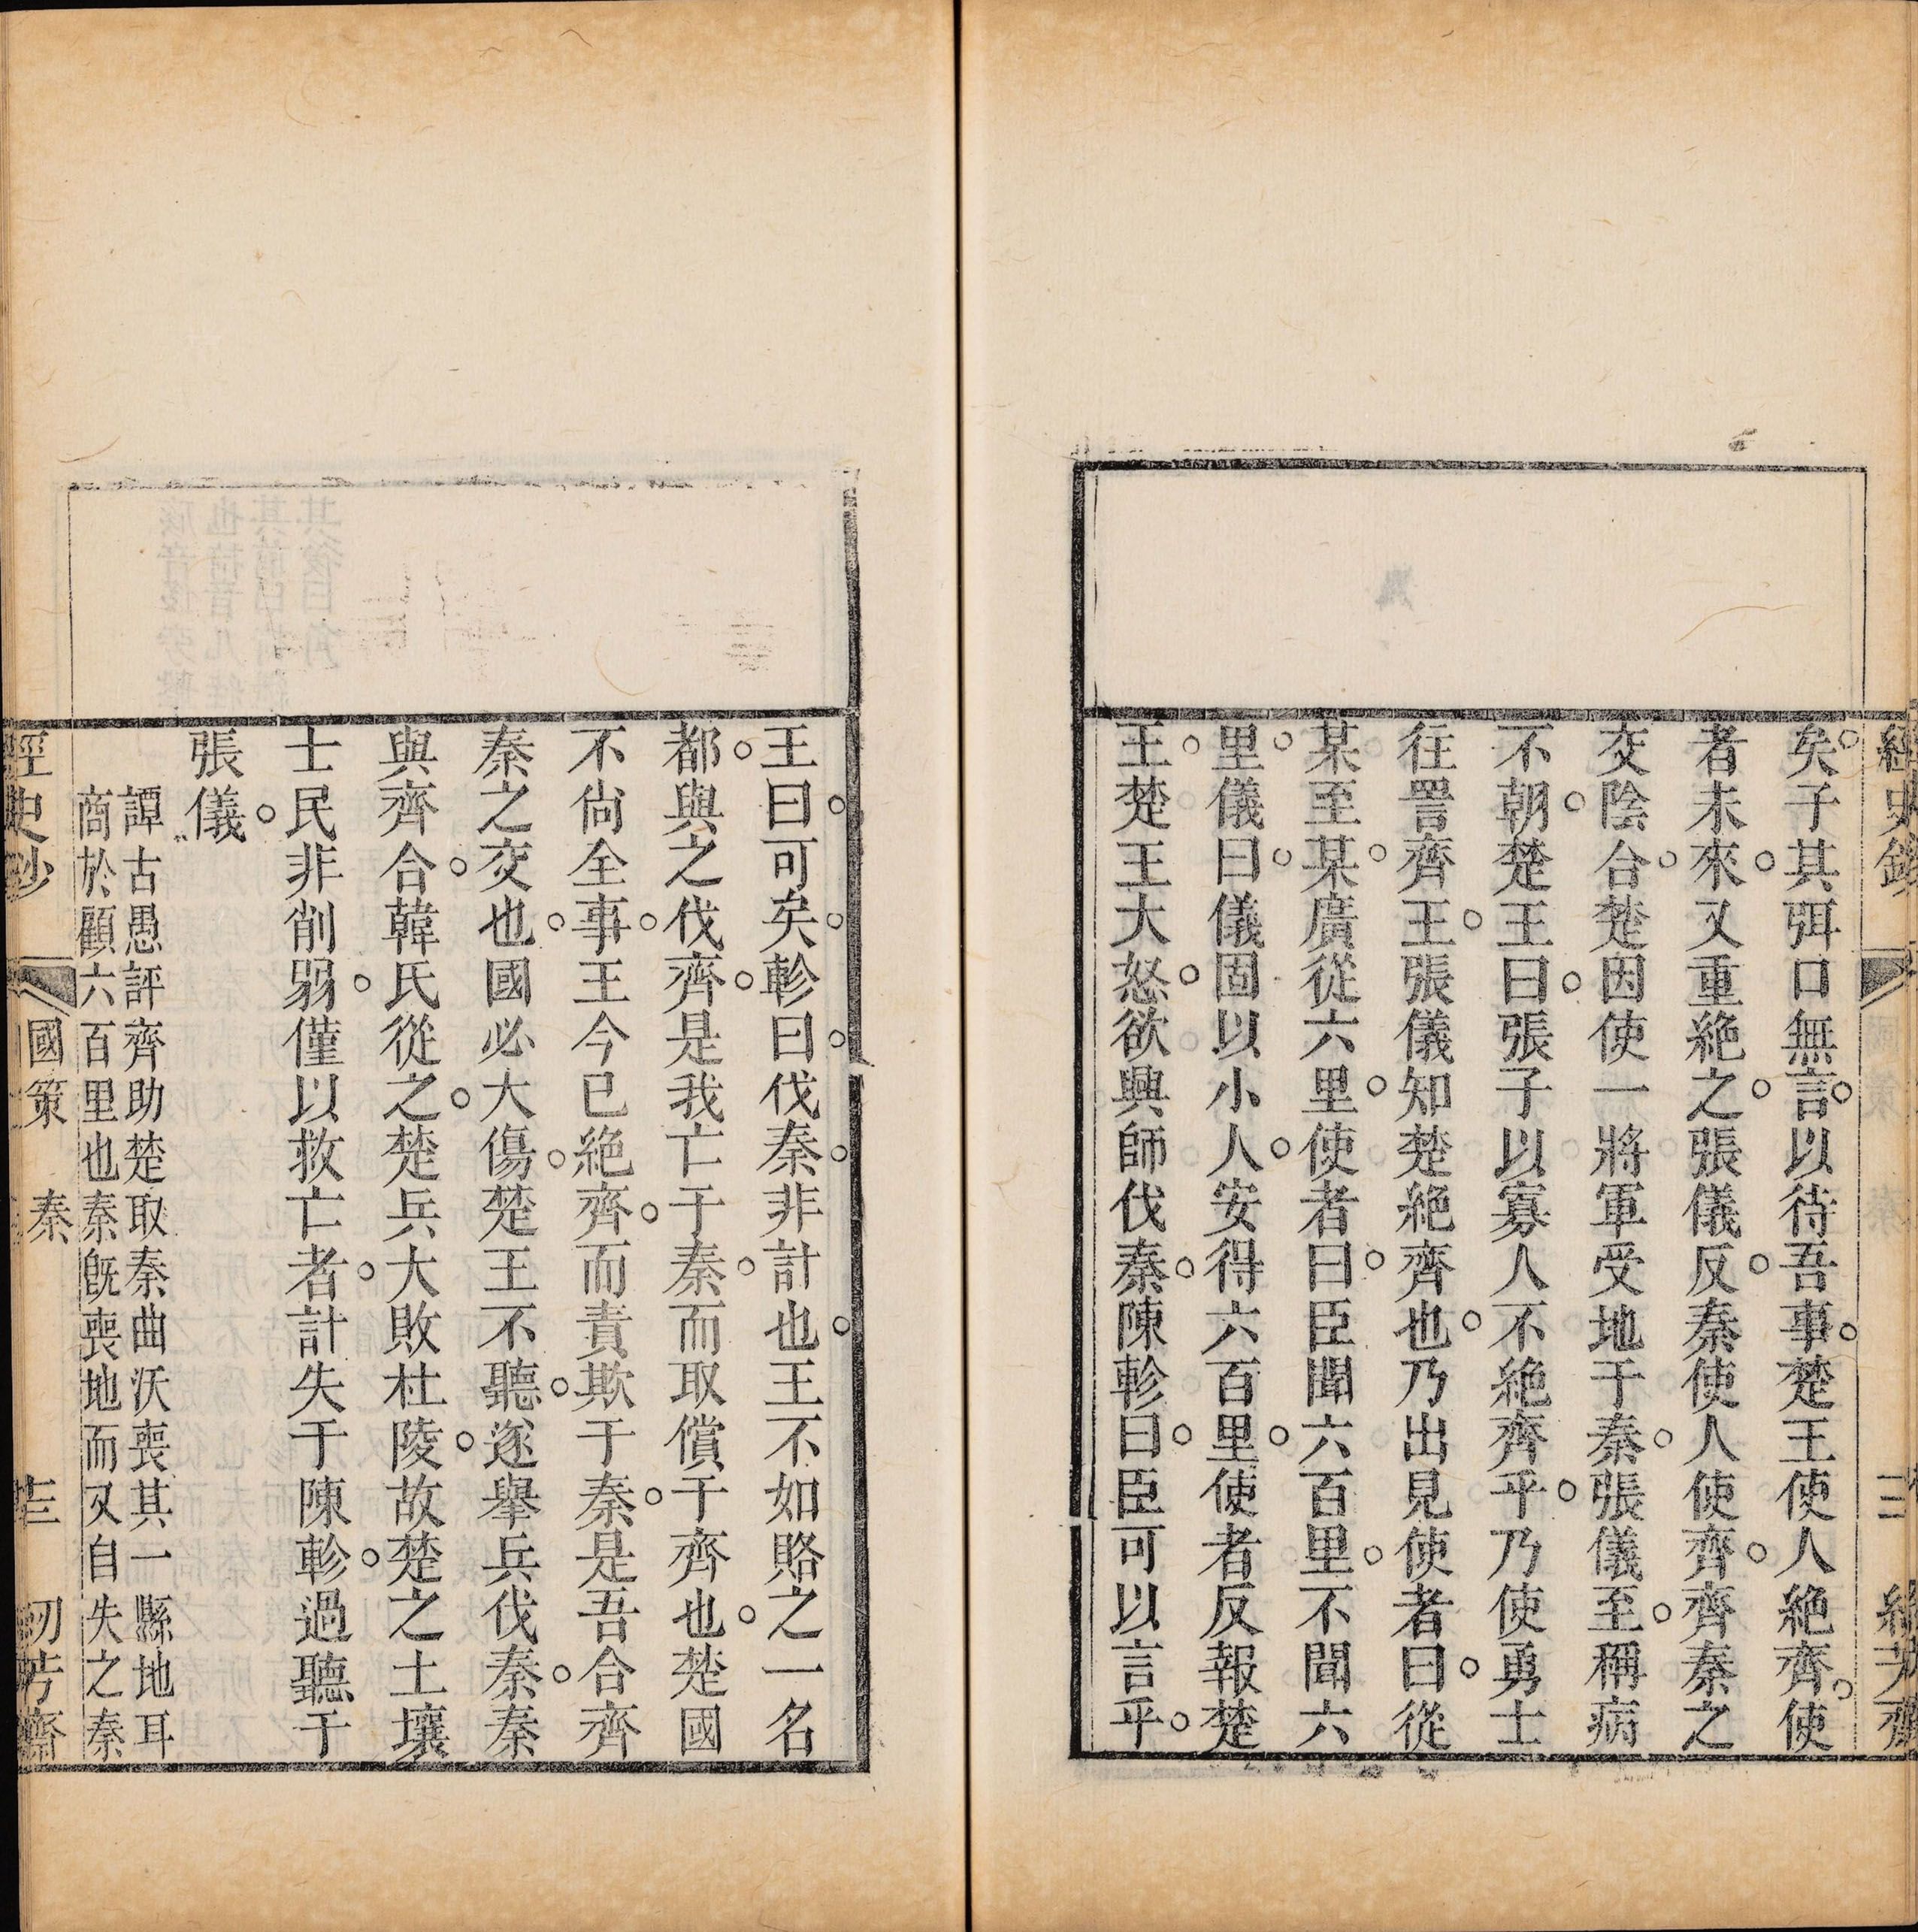 矣子其弭口無言以待吾事楚王使人絶齊使
者未來又重絶之張儀反秦使人使齊齊秦之
交陰合楚因使一將軍受地于秦張儀至稱病
不朝楚王曰張子以寡人不絶齊乎乃使勇士
往詈齊王張儀知楚絶齊也乃出見使者曰從
某至某廣從六里使者曰臣聞六百里不聞六
里儀曰儀固以小人安得六百里使者反報楚
王楚王大怒欲興師伐秦陳軫曰臣可以言乎
王曰可矣軫曰伐秦非計也王不如賂之一名
都與之伐齊是我亡于秦而取償于齊也楚國
不尙全事王今已絶齊而責欺于秦是吾合齊
秦之交也國必大傷楚王不聽遂舉兵伐秦秦
與齊合韓氏從之楚兵大敗杜陵故楚之土壤
士民非削弱僅以救亡者計失于陳軫過聽于
張儀
譚古愚評齊助楚取秦曲沃喪其一縣地耳
商於顧六百里也秦旣喪地而又自失之秦
經史鈔 國策 秦 圭 紉芳齋